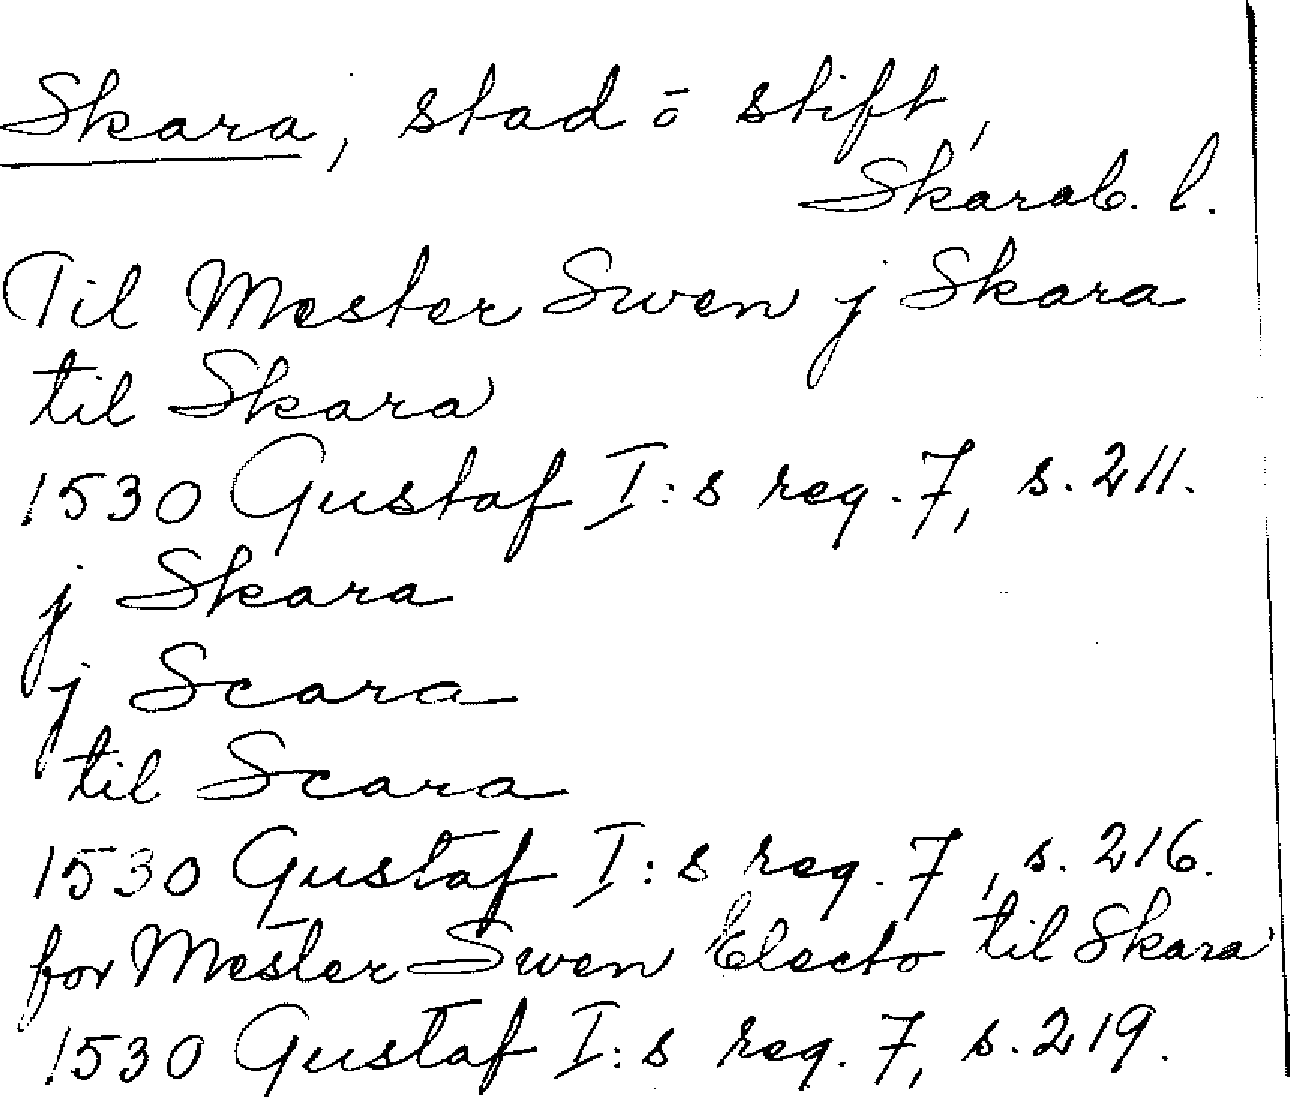 Skara, stad ō stift,
Skarab. l.
Til Mester Swen j Skara
til Skara
1530 Gustaf I:s reg. 7, s. 211.
j Skara
j Scara
til Scara
1530 Gustaf I:s reg. 7, s. 216.
for Mester Swen Electo til Skara
1530 Gustaf I:s reg. 7, s. 219.